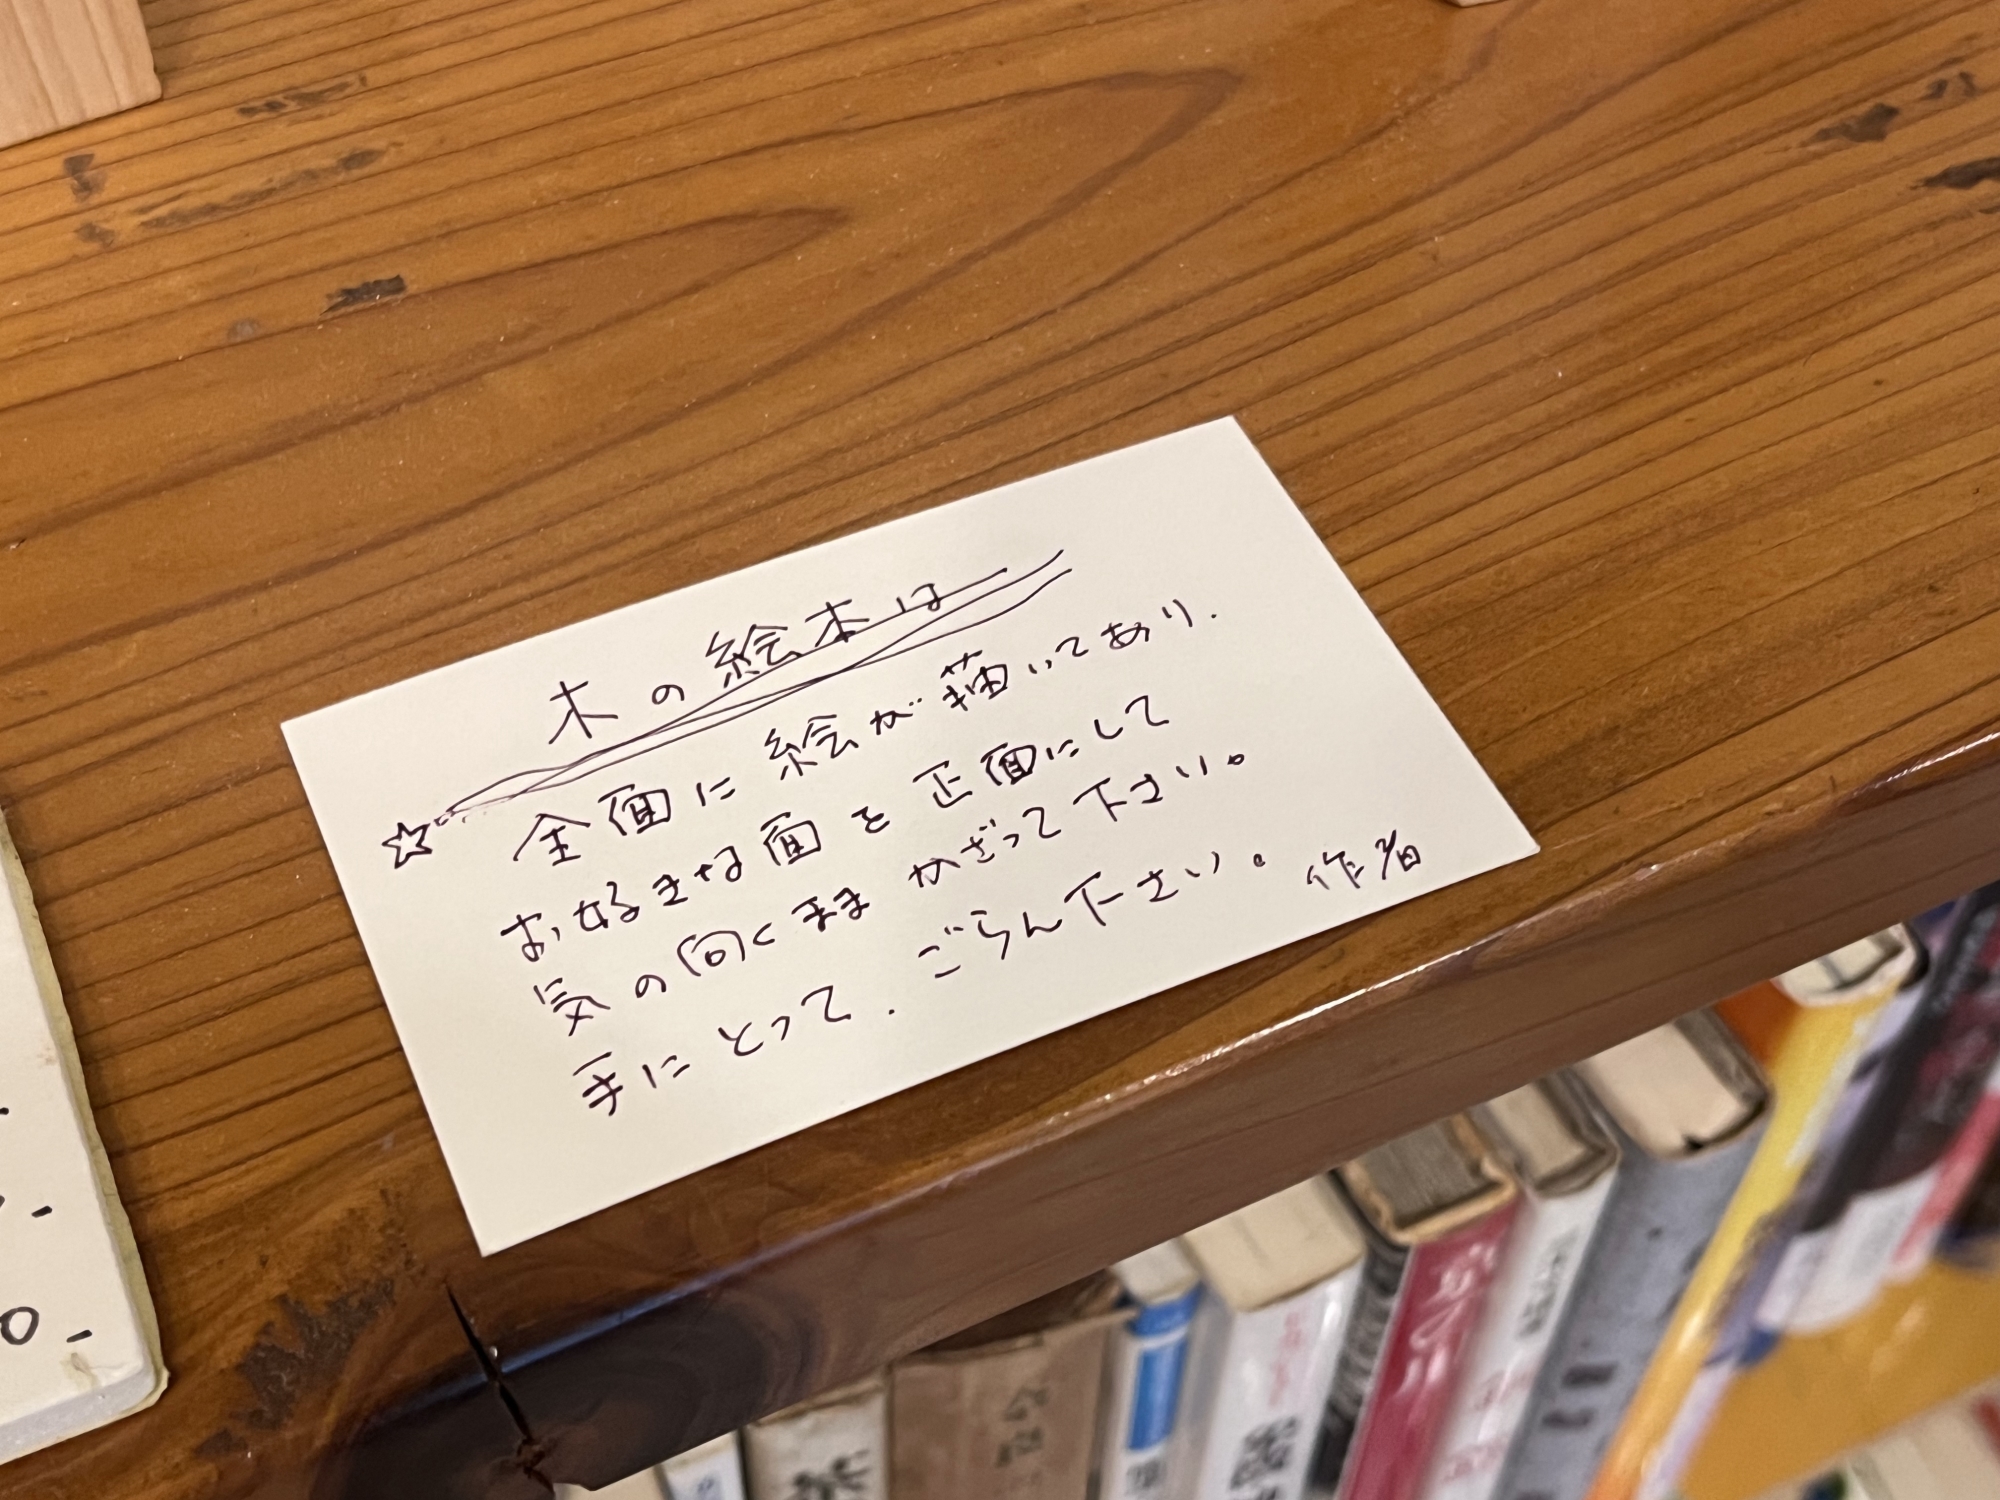 木の絵本は
☆ 全面に絵が描いてあり.
お好きな面を正面にして
気の向くままかざって下さい。
手にとって. ごらん下さい。 作者